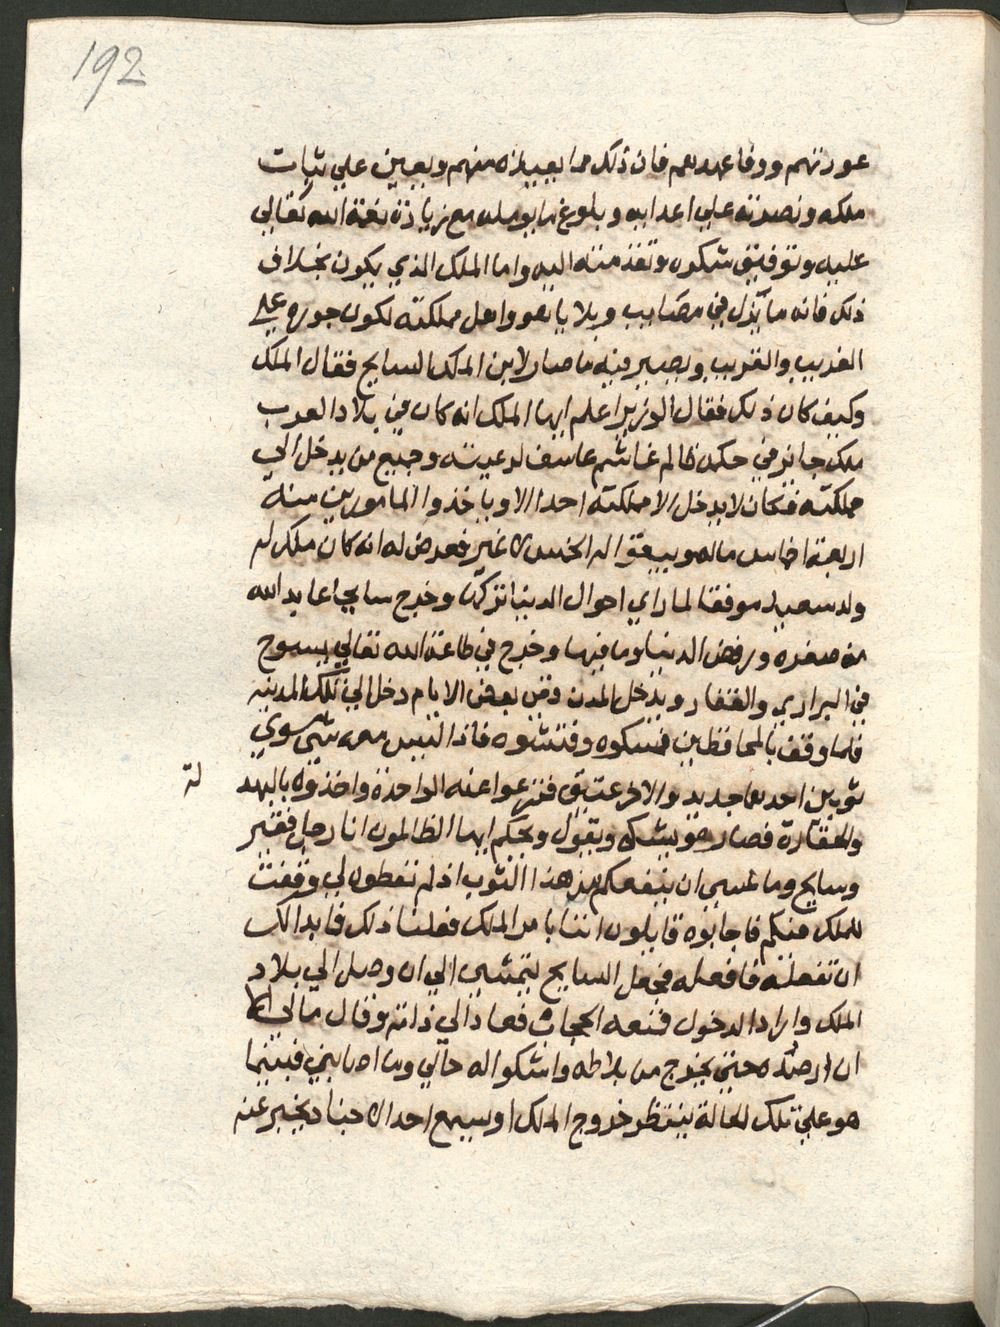 192
عورتهم ووفا عهدهم فان ذلك مما يحببه منهم ويعين علي ثبات
ملكه ونصرته علي اعدايه وبلوغ ما يومله مع زيادة نعمة الله تعالي
عليه وتوفيق شكره وتفذ منته اليه واما الملك الذي يكون بخلاف
ذلك فانه ما يزل في مصايب وبلايا هو واهل مملكته لكون جوره علي
الغريب والقريب ويصير فيه ما صار لابن الملك السايح فقال الملك
وكيف كان ذلك فقال الوزير اعلم ايها الملك انه كان في بلاد العرب
ملك جاير في حكمه ظالم غاشم عاسف لرعيته وجميع من يدخل الي
مملكته فكان لا يدخل الا مملكته احدا الا وياخذوا المامورين منه
اربعة اخماس ماله ويبقوا له الخمس لا غير فعرض له انه كان ملك له
ولد سعيد موفقا لما راي احوال الدنيا تركها وخرج سايحا عابد الله
من صغره ورفض الدنيا وما فيها وخرج في طاعة الله تعالي يسوح
في البراري والقفار ويدخل المدن وفي بعض الايام دخل الي تلك المدينه
فلما وقف بالمحافظين مسكوه وفتشوه فاذا ليس معه شي سوي
ثوبين احدهما جديد والاخر عتيق فنزعوا عنه الواحدة واخذوه بالبهد
له
والحقارة فصار هو يشكي ويقول ويحكم ايها الظالمون انا رجل فقير
وسايح وما عسي ان ينفعكم هذا الثوب اذ لم تعطوه لي وقفت
للملك منكم فاجابوه قايلون اننا بامر الملك فعلنا ذلك فابدا لك
ان تفعله فافعله فجعل السايح يتمشي الي ان وصل الي بلاد
الملك واراد الدخول فمنعه الحجاب فعاد الي ذاته وقال مالي الا
ان ارصده حتي يخرج من بلاطه واشكوا له حالي وما اصابني فبينما
هو علي تلك الحالة ينتظر خروج الملك اوسمع احد الاجناد يخبر عنه